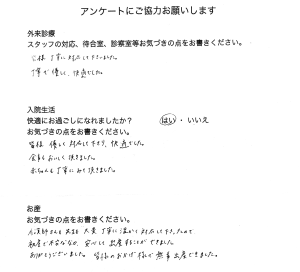 アンケートにご協力お願いします
外来診療
スタッフの対応、待合室、診察室等お気づきの点をお書きください。
丁寧に対応して下さいました。
丁寧で優しく、快適でした。
入院生活
快適にお過ごしになれましたか？ はい ・ いいえ
お気づきの点をお書きください。
皆様 優しく対応して下さり、快適でした。
食事もおいしく頂きました。
赤ちゃんも丁寧にみて頂きました。
お産
お気づきの点をお書きください。
助産師さんも 大変 丁寧に 対応して下さったので
初産で不安ななか、安心して出産することができました。
ありがとうございました。 皆様のおかげ様で無事出産できました。